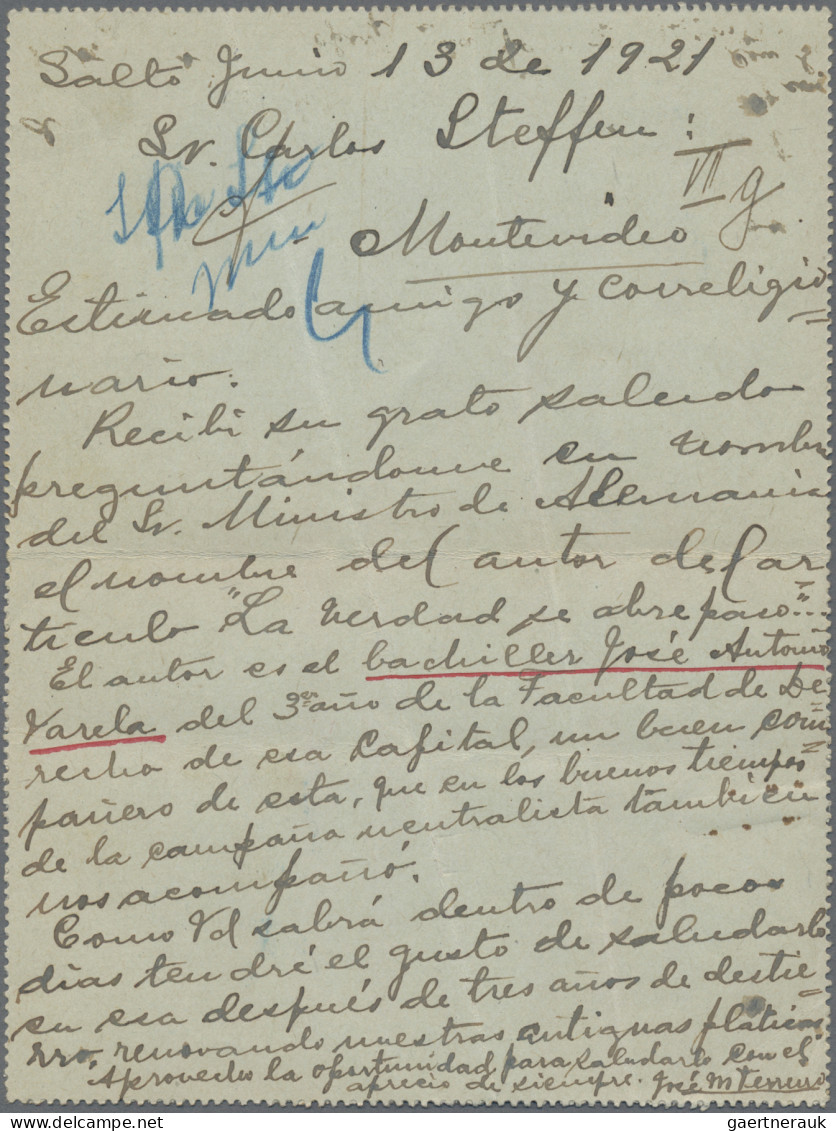 Salto Junio 13 de 1921
Sr. Carlos Steffen:
VII g
Montevideo
Estimado amigo y correligio=
nario.
Recibi su grato saludo
preguntándome en nombre
del Sr. Ministro de Alemania
el nombre del autor del ar=
tículo "La verdad se abre paso"...
El autor es el bachiller José Antonio
Varela del 3er año de la Facultad de De=
recho de esa Capital, un buen com=
pañero de esta, que en los buenos tiempos
de la campaña neutralista también
nos acompañó.
Como Vd sabrá dentro de pocos
días tendré el gusto de saludarlo
en esa después de tres años de destie=
rro, renovando nuestras antiguas pláticas
Aprovecho la oportunidad para saludarlo con el
aprecio de siempre. José M
gaertnerauk